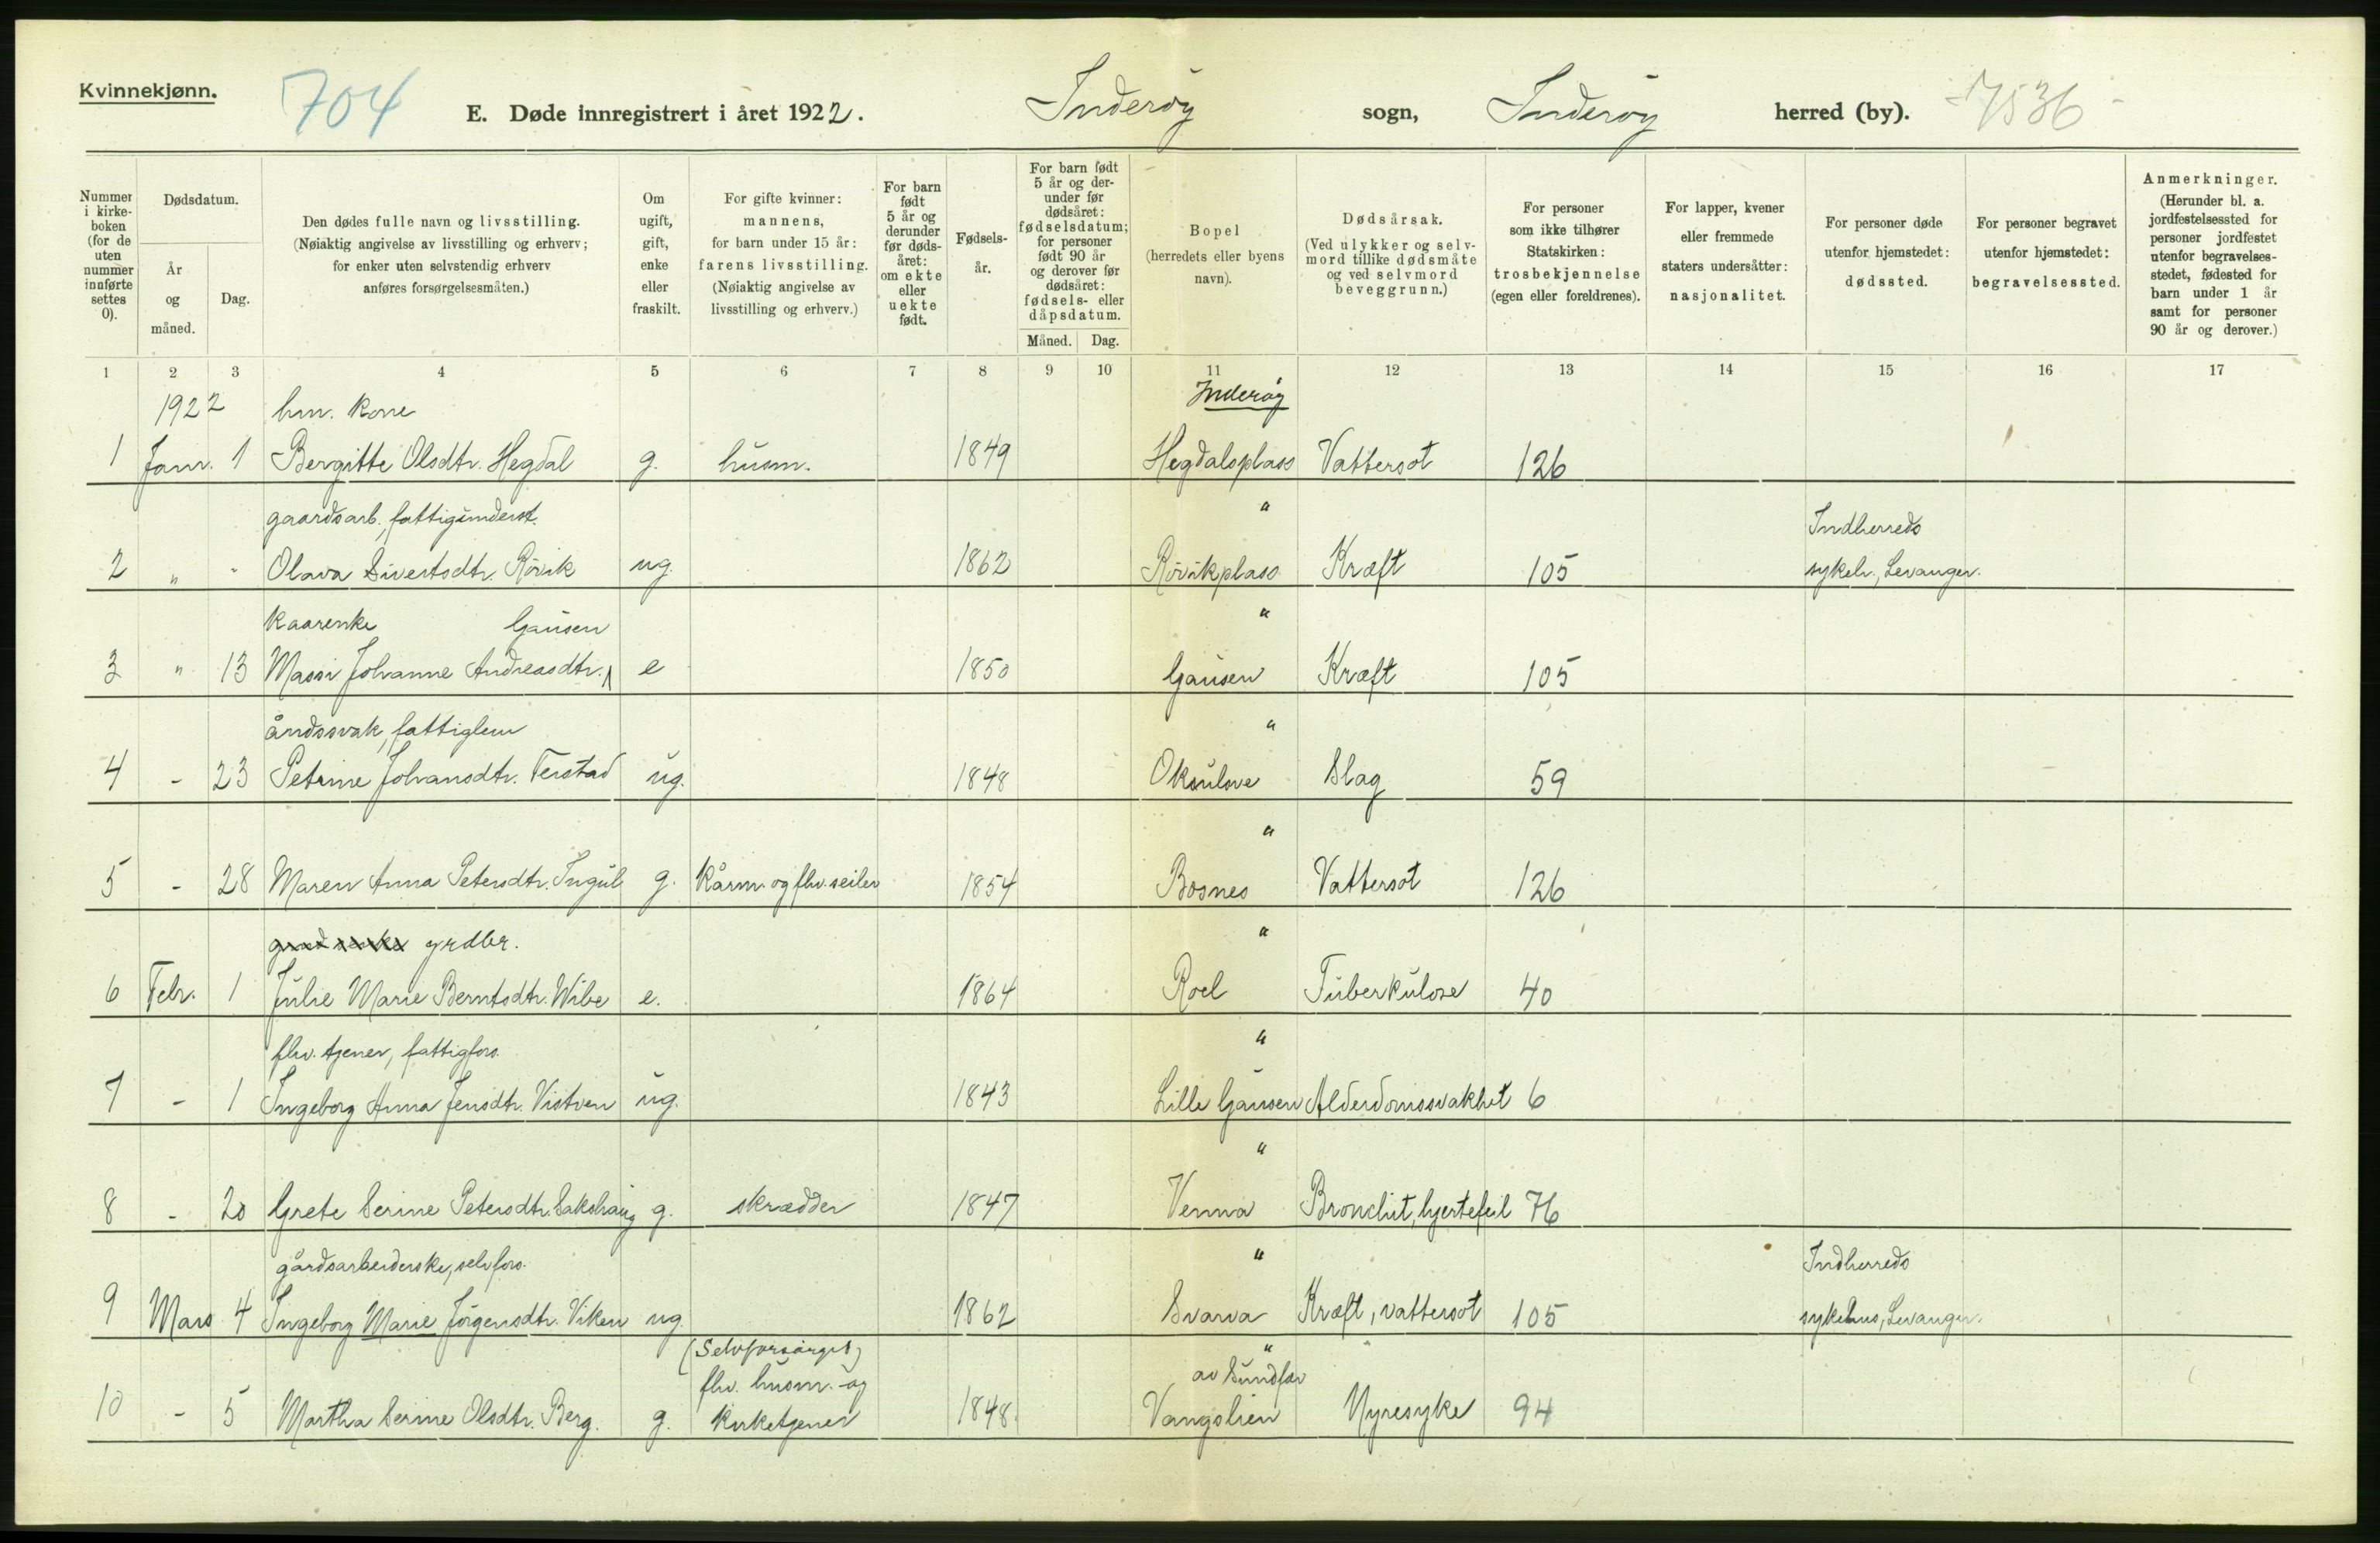 Kvinnekjønn.
704
E. Døde innregistrert i året 1922.
Inderøy sogn, Inderøy herred (by).
17536
Nummer i kirkeboken (for de uten nummer innførte settes 0).
Dødsdatum.
År og måned.
Dag.
Den dødes fulle navn og livsstilling.
(Nøiaktig angivelse av livsstilling og erhverv;
for enker uten selvstendig erhverv
anføres forsørgelsesmåten.)
Om ugift, gift, enke eller fraskilt.
For gifte kvinner:
mannens,
for barn under 15 år:
farens livsstilling.
(Nøiaktig angivelse av
livsstilling og erhverv.)
For barn født 5 år og derunder før dødsåret: om ekte eller uekte født.
Fødselsår.
For barn født 5 år og derunder før dødsåret: fødselsdatum; for personer født 90 år og derover før dødsåret: fødsels- eller dåpsdatum.
Måned. Dag.
Bopel
(herredets eller byens
navn).
Dødsårsak.
(Ved ulykker og selvmord tillike dødsmåte og ved selvmord beveggrunn.)
For personer
som ikke tilhører
Statskirken:
trosbekjennelse
(egen eller foreldrenes).
For lapper, kvener
eller fremmede
staters undersåtter:
nasjonalitet.
For personer døde
utenfor hjemstedet:
dødssted.
For personer begravet
utenfor hjemstedet:
begravelsessted.
Anmerkninger.
(Herunder bl. a. jordfestelsessted for personer jordfestet utenfor begravelsesstedet, fødested for barn under 1 år samt for personer 90 år og derover.)
1 2 3 4 5 6 7 8 9 10 11 12 13 14 15 16 17
1922 hm. kone Inderøy
1 Janr. 1 Bergitte Olsdtr. Hegdal g. husm. 1849 Hegdalsplass Vattersot 126
gaardsarb., fattigunderst. " Indherreds
2 " " Olava Sivertsdtr. Rövik ug. 1862 Rövikplass Kræft 105 sykeh., Levanger.
Kaarenke Gausen "
3 " 13 Massi Johanne Andreasdtr. e 1850 Gausen Kræft 105
åndssvak, fattiglem "
4 - 23 Petrine Johansdtr. Terstad ug. 1848 Oksulsve Slag 59
"
5 - 28 Maren Anna Petersdtr. Ingul g. Kårm. og fhv. seiler 1854 Bosnes Vattersot 126
grdbr. "
6 Febr. 1 Julie Marie Berntsdtr. Wibe e. 1864 Roel Tuberkulose 40
fhv. tjener, fattigfors. "
7 - 1 Ingeborg Anna Jensdtr. Vistven ug. 1843 Lille Gausen Alderdomssvakhet 6
"
8 - 20 Grete Serine Petersdtr. Sakshaug g. skrædder 1847 Venna Bronchit, hjertefeil 76
gårdsarbeiderske, selvfors. " Indherreds
9 Mars 4 Ingeborg Marie Jörgensdtr. Viken ug. 1862 Svarva Kræft, vattersot 105 sykehus, Levanger.
(Selvforsørget) "
fhv. husm. og av Sundfær
10 - 5 Martha Serine Olsdtr. Berg. g. kirketjener 1848. Vangslien Nyresyke 94